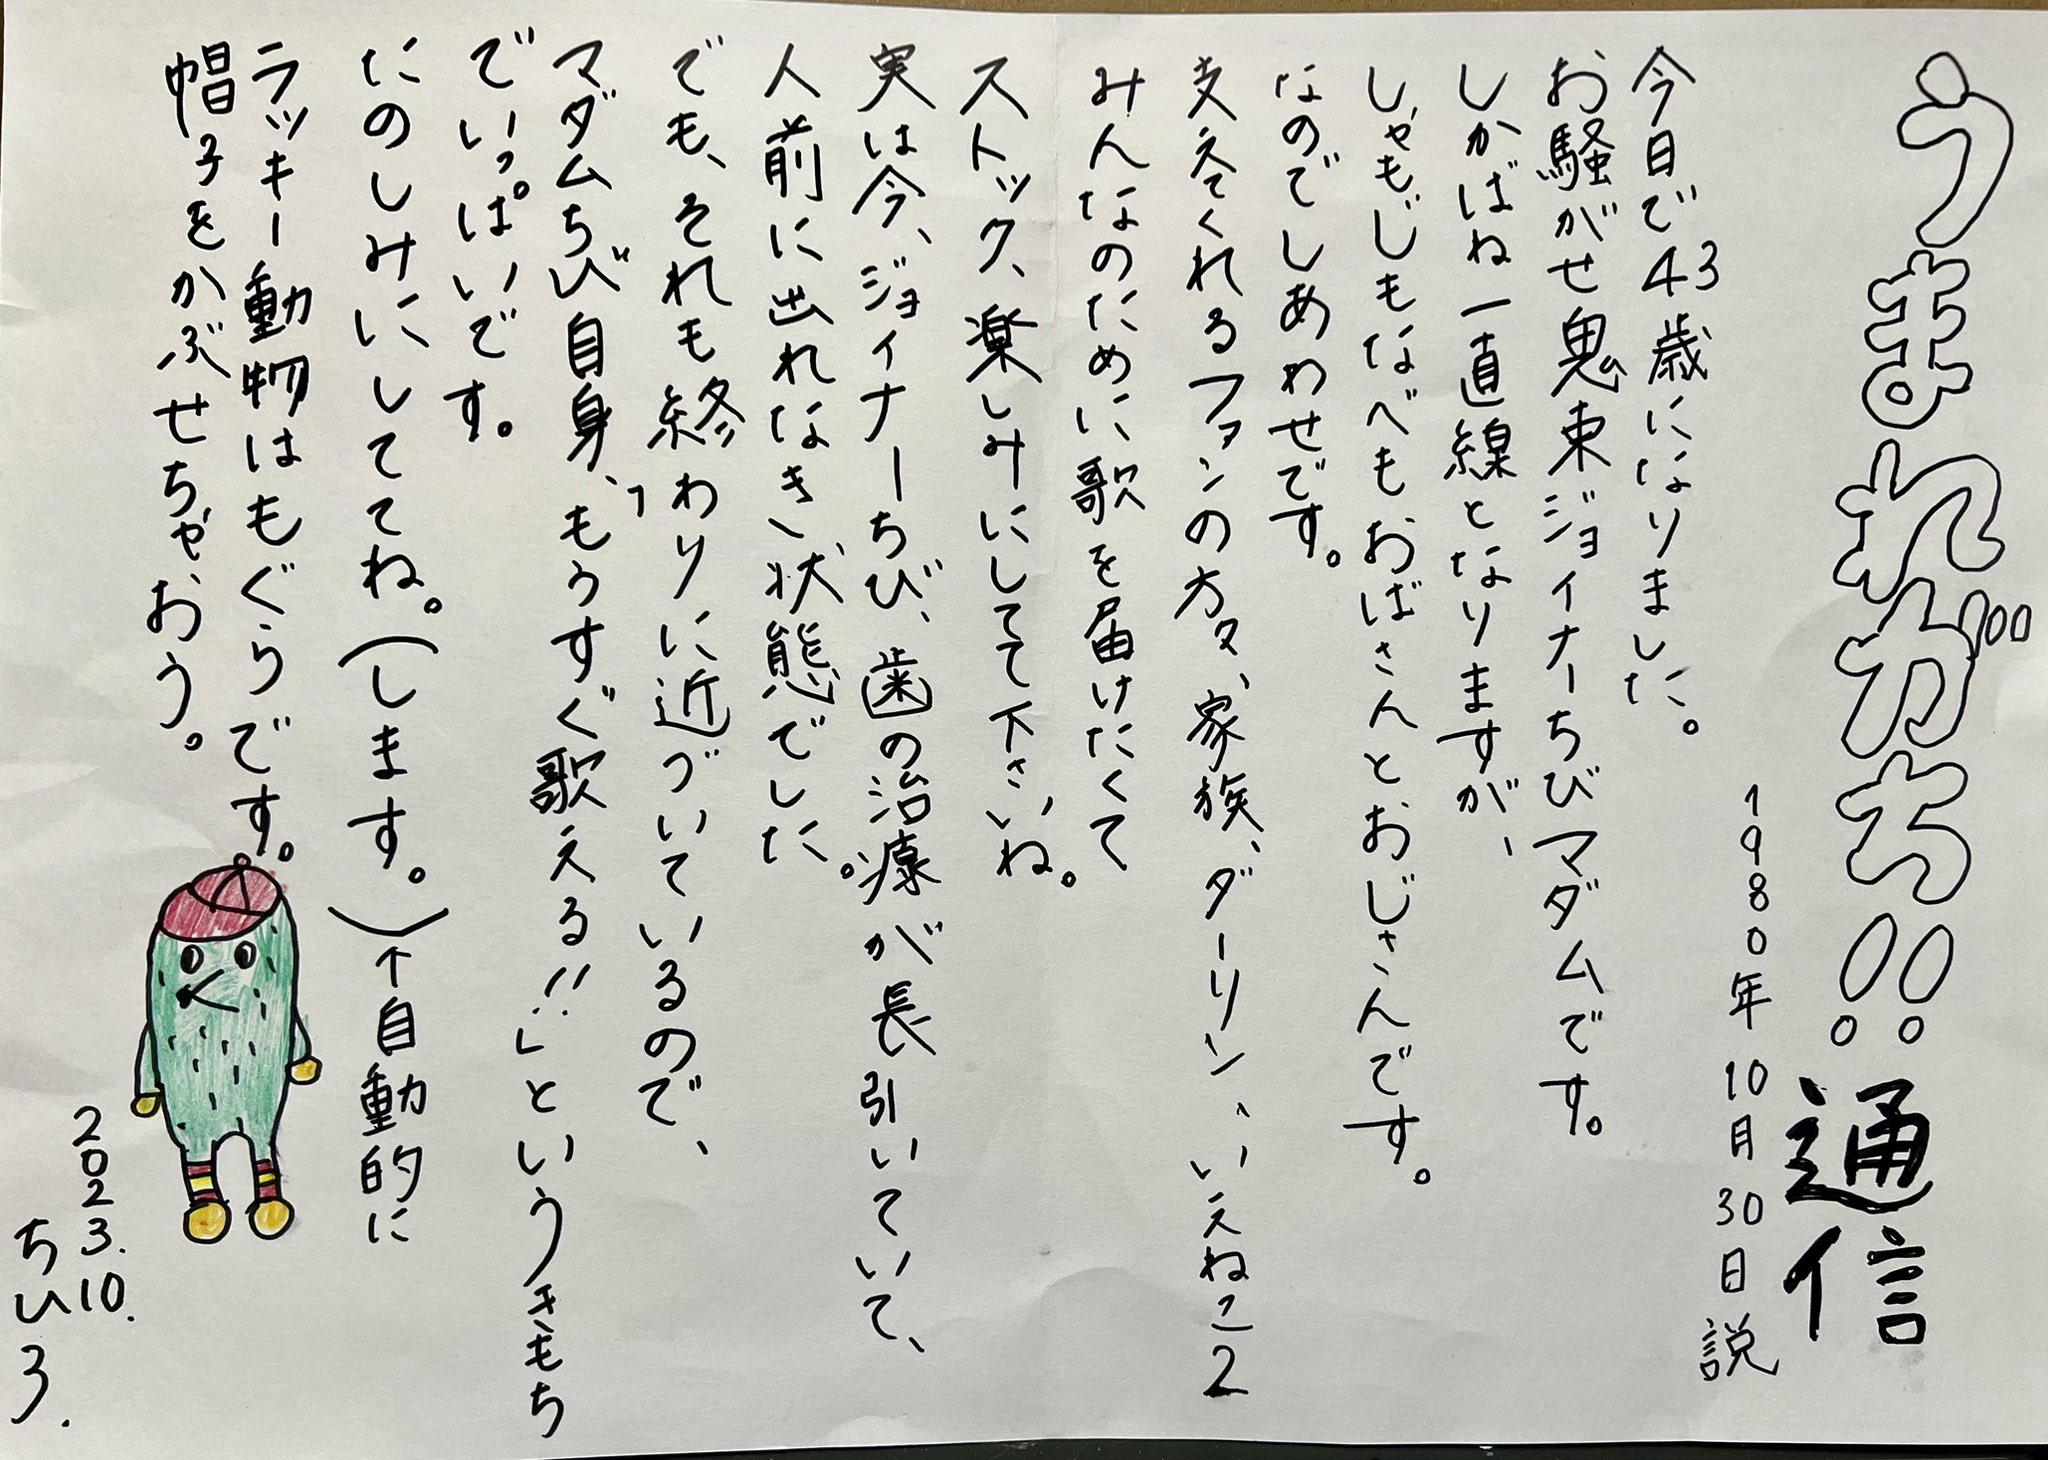 うまれがち!! 通信
1980年10月30日説
今日で43歳になりました。
お騒がせ鬼束ジョイナーちびマダムです。
しかばね一直線となりますが、
しゃもじもなべもおばさんとおじさんです。
なのでしあわせです。
支えてくれるファンの方々、家族、ダーリン、いえねこ2
みんなのために歌を届けたくて
ストック、楽しみにしてて下さいね。
実は今、ジョイナーちび、歯の治療が長引いていて、
人前に出れなき状態でした。
でも、それも終わりに近づいているので、
マダムちび自身、「もうすぐ歌える!!」というきもち
でいっぱいです。
たのしみにしててね。(します。)↑自動的に
ラッキー動物はもぐらです。
帽子をかぶせちゃおう。
2023.10.
ちひろ.